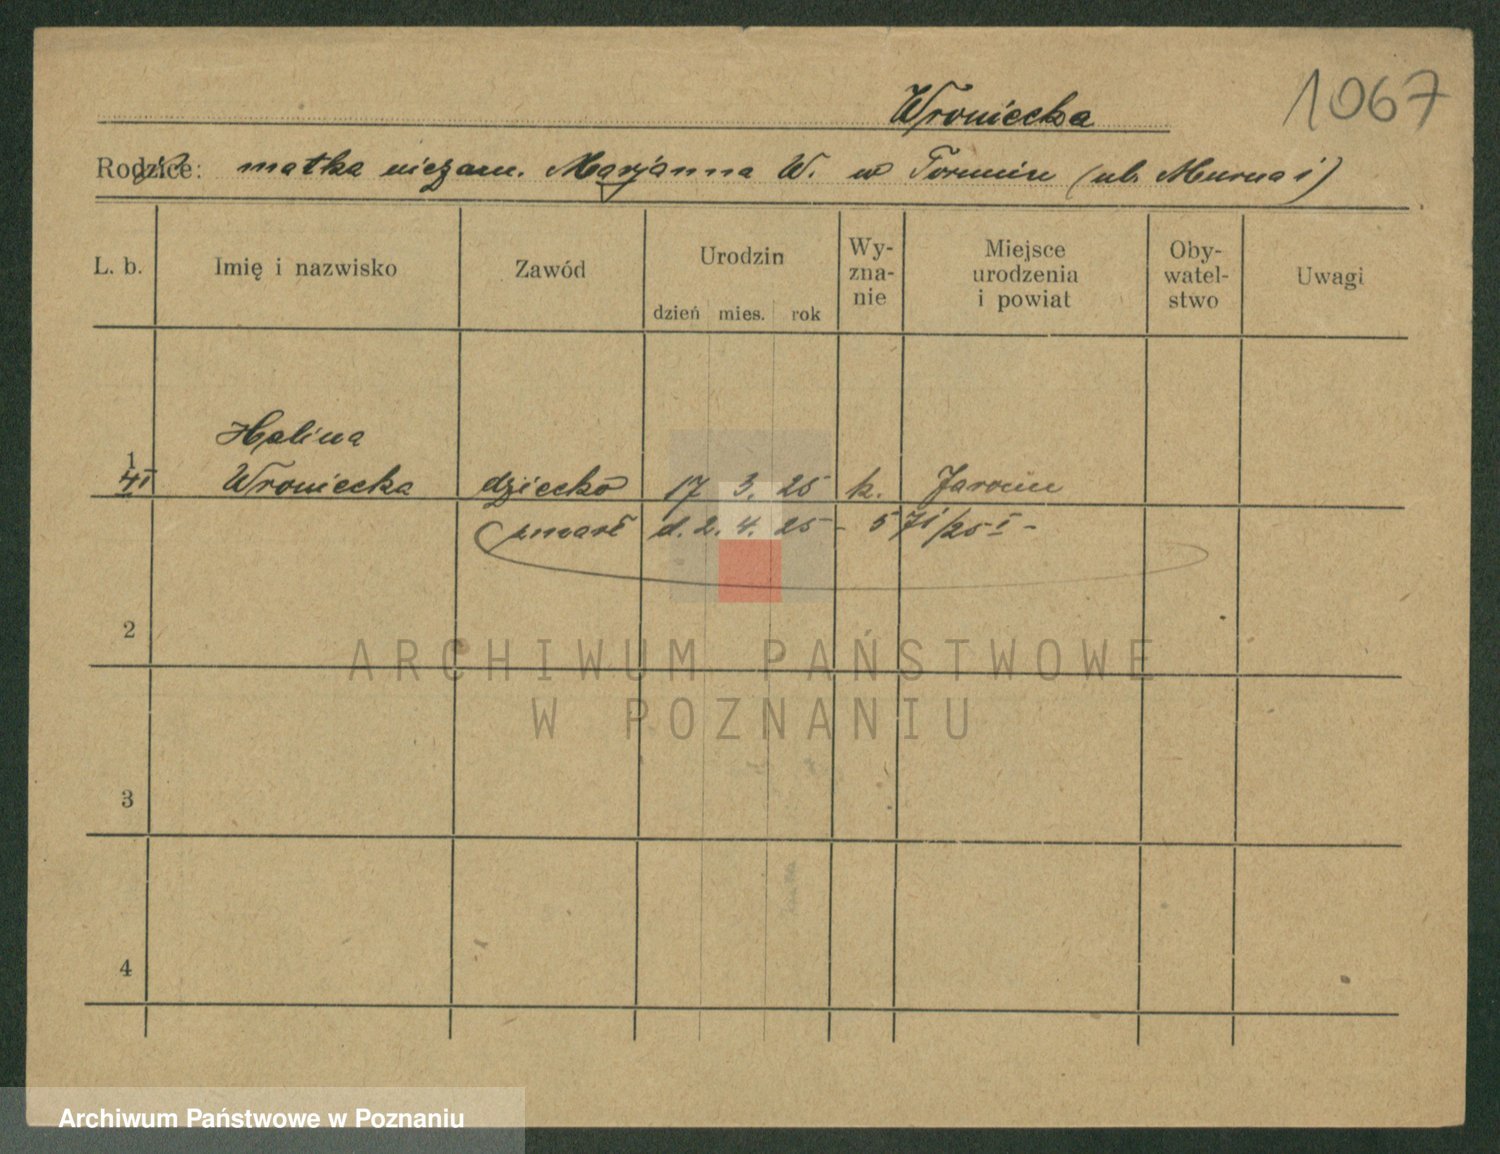 Wroniecka
1067
Rodzice: matka niezam. Marjanna W. w Toruniu (ul. Murna i)
L. b.
Imię i nazwisko
Zawód
Urodzin
dzień mies. rok
Wy-
zna-
nie
Miejsce
urodzenia
i powiat
Oby-
watel-
stwo
Uwagi
Halina
1
Wroniecka dziecko 17 3. 25 k.
zmarł d. 2. 4. 25 - 571/25 I -
2
3
4
ARCHIWUM PAŃSTWOWE
W POZNANIU
Archiwum Państwowe w Poznaniu